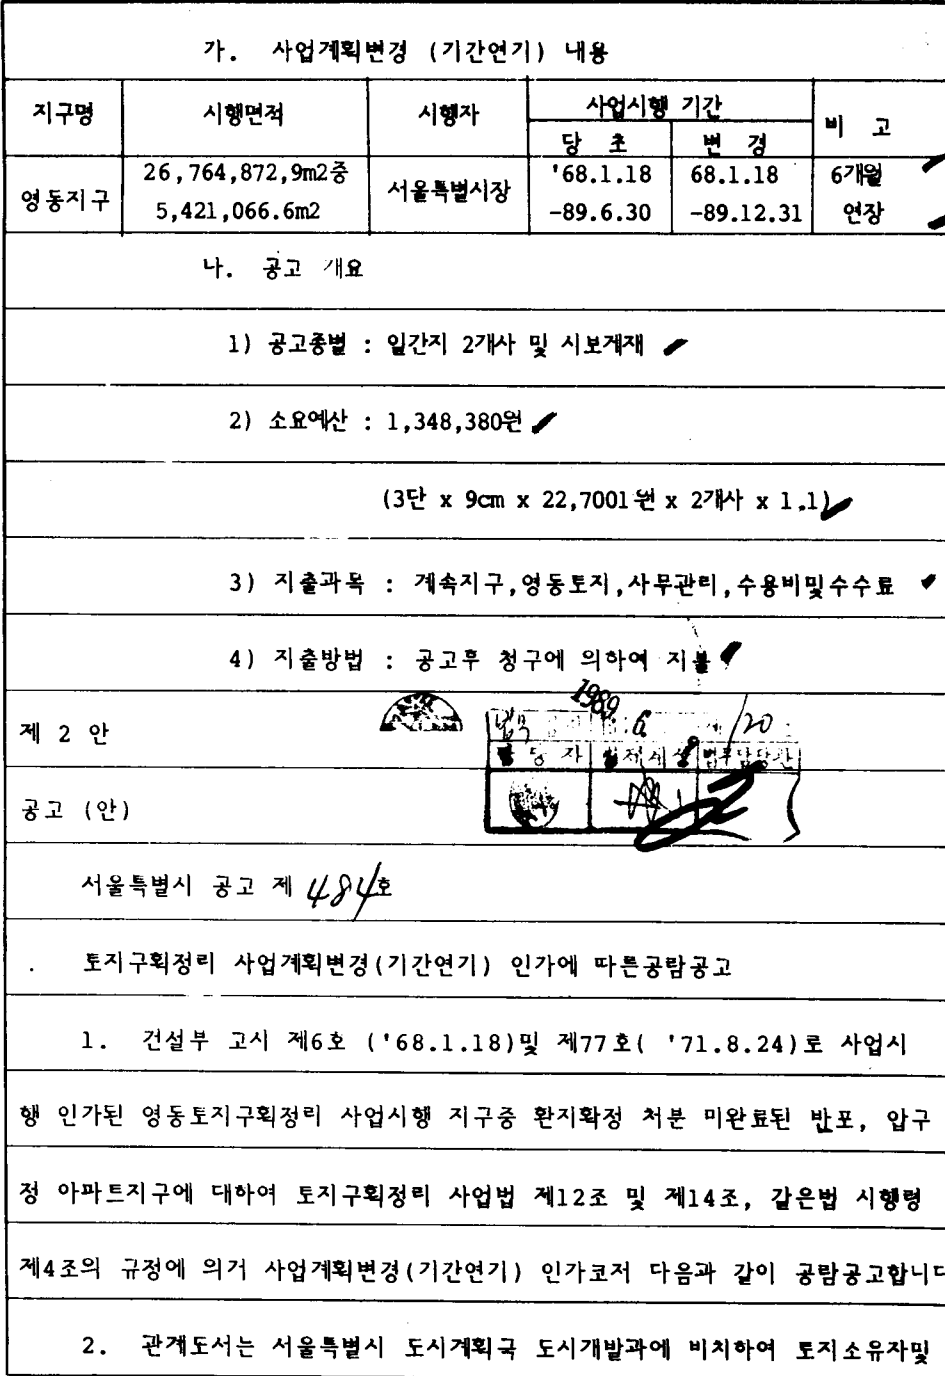 가. 사업계획변경 (기간연기) 내용
지구명 시행면적 시행자 사업시행 기간 비 고
당 초 변 경
영동지구 26,764,872,9m2중 서울특별시장 '68.1.18 68.1.18 6개월
5,421,066.6m2 -89.6.30 -89.12.31 연장
나. 공고 개요
1) 공고종별 : 일간지 2개사 및 시보게재
2) 소요예산 : 1,348,380원
(3단 x 9cm x 22,7001원 x 2개사 x 1.1)
3) 지출과목 : 계속지구,영동토지,사무관리,수용비및수수료
4) 지출방법 : 공고후 청구에 의하여 지불
1989
6 20
제 2 안
담당자 법무담당관
공고 (안)
서울특별시 공고 제 484호
토지구획정리 사업계획변경(기간연기) 인가에 따른공람공고
1. 건설부 고시 제6호 ('68.1.18)및 제77호( '71.8.24)로 사업시
행 인가된 영동토지구획정리 사업시행 지구중 환지확정 처분 미완료된 반포, 압구
정 아파트지구에 대하여 토지구획정리 사업법 제12조 및 제14조, 같은법 시행령
제4조의 규정에 의거 사업계획변경(기간연기) 인가코저 다음과 같이 공람공고합니다
2. 관계도서는 서울특별시 도시계획국 도시개발과에 비치하여 토지소유자및